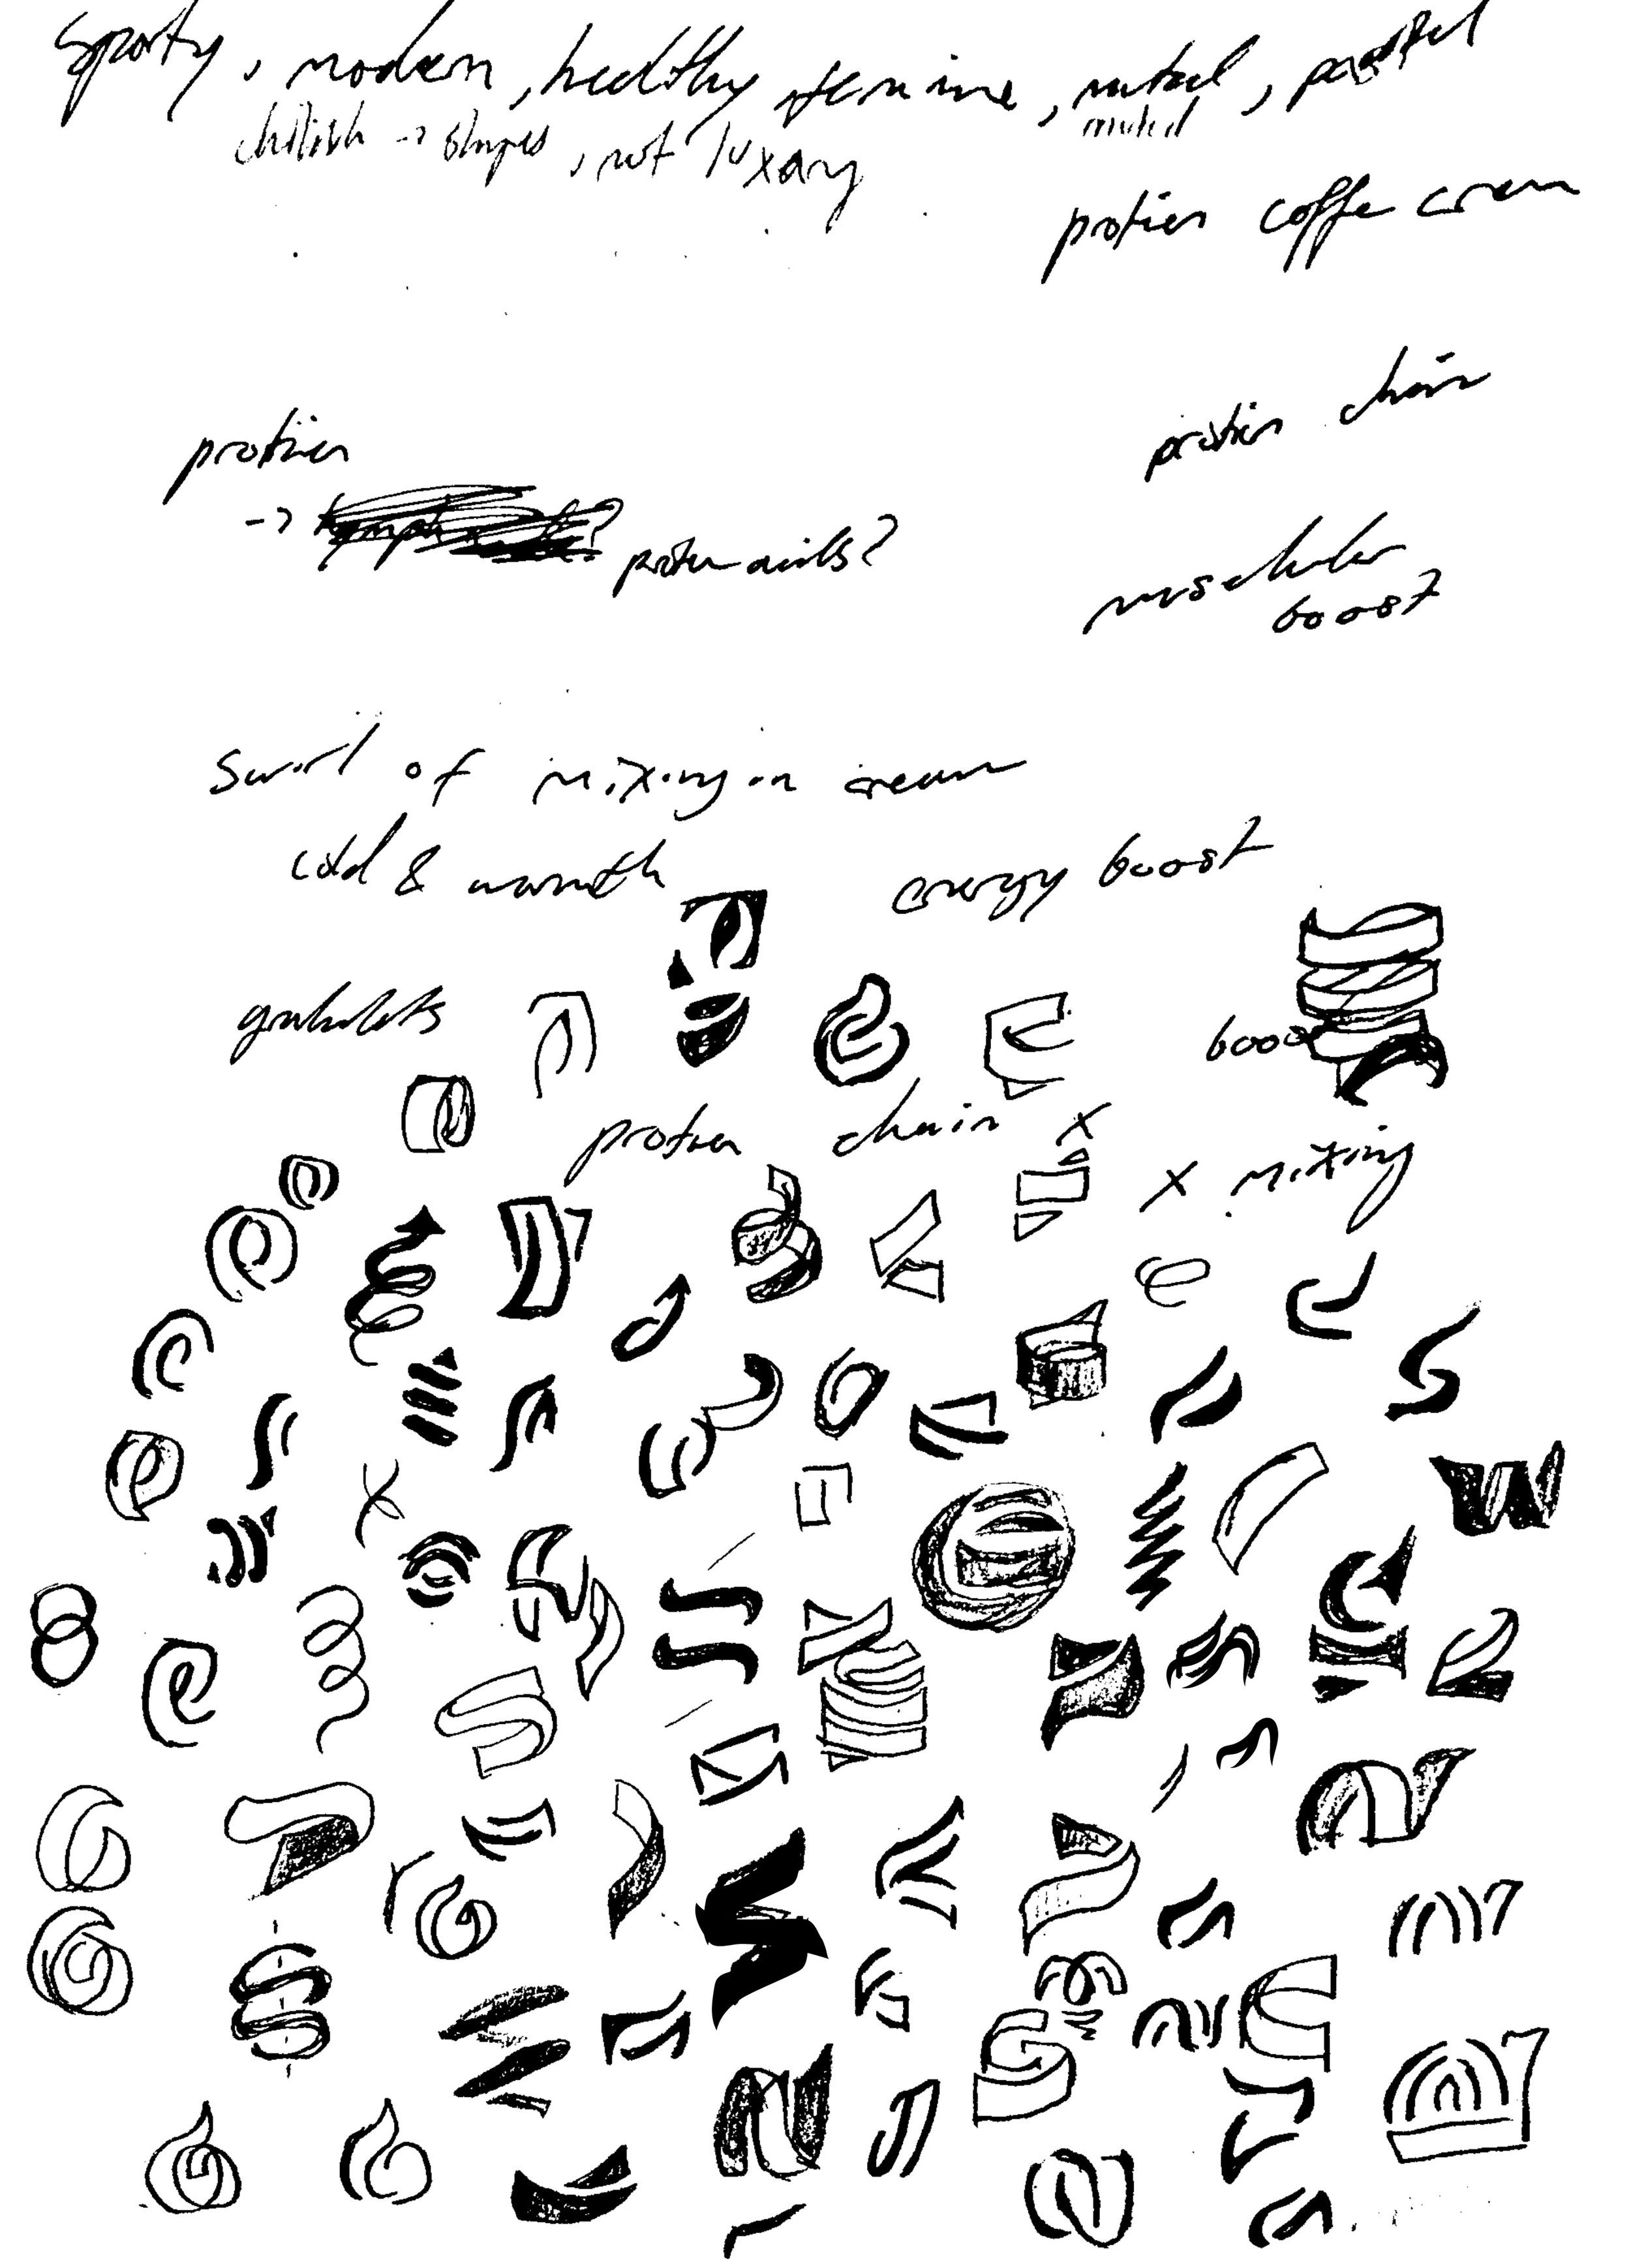 Sporty, modern, healthy femine, muted, pastel
childish -> shapes, not luxary
muted
protien coffe cream
protien chain
protien
-> protien acids?
boost
swirl of mixing in cream
cold & warmth
energy boost
boost
protien chain x
x mixing